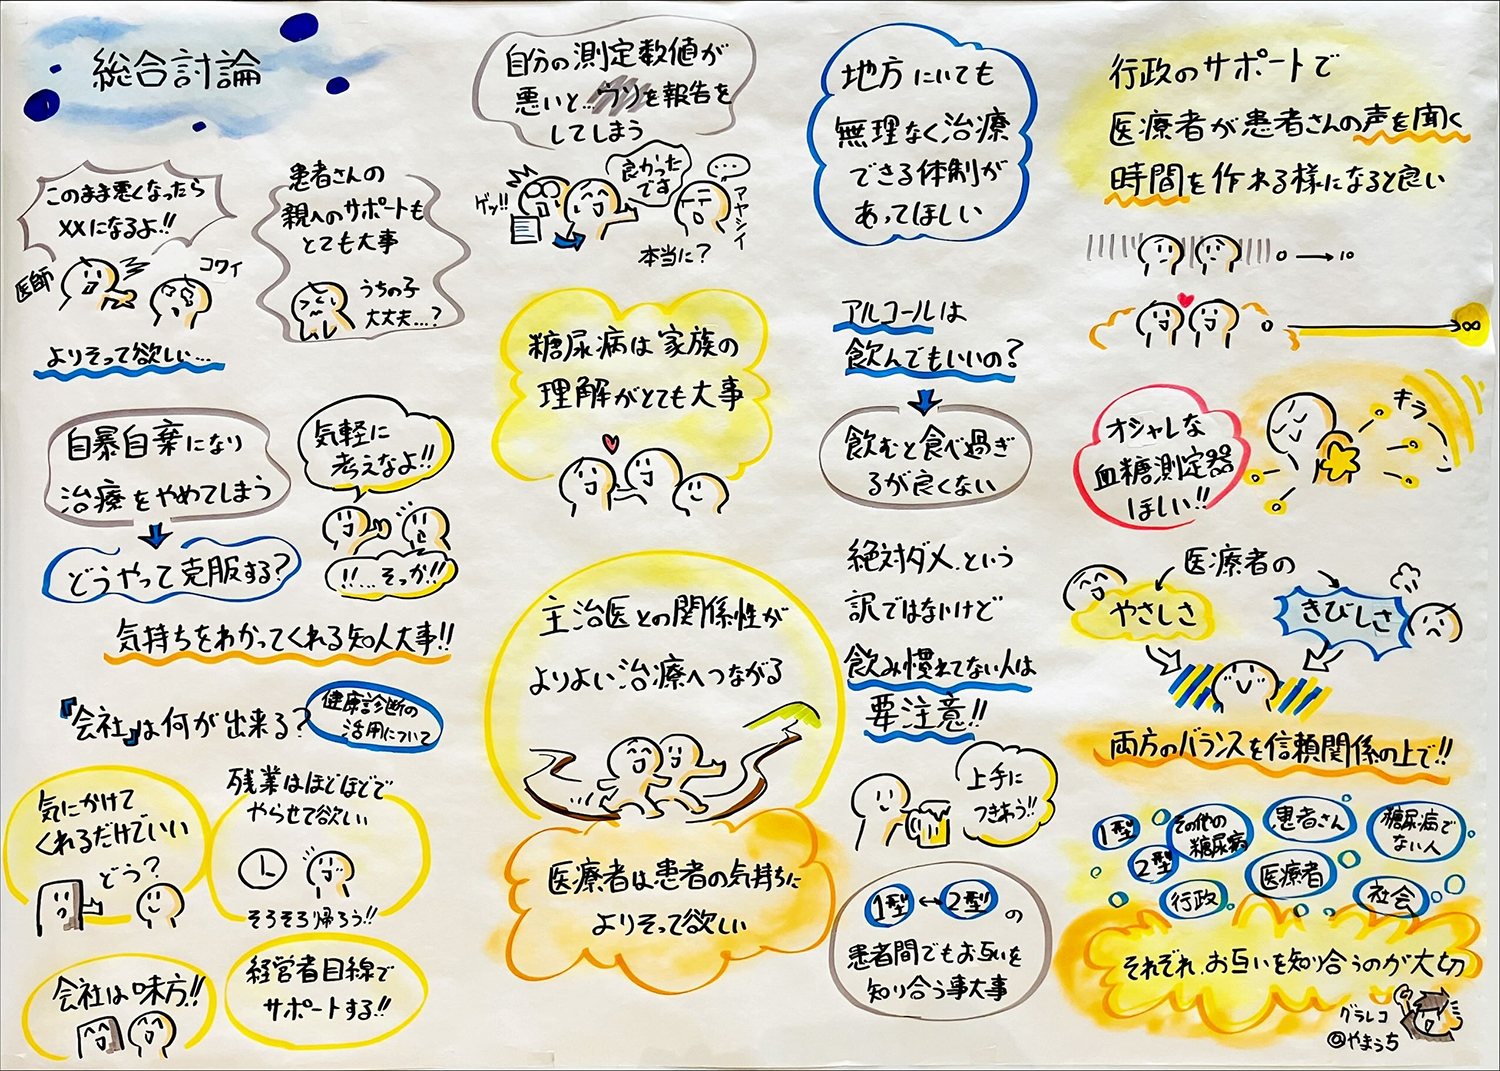 総合討論
このまま悪くなったら
××になるよ!!
医師
コワイ
よりそって欲しい…
患者さんの
親へのサポートも
とても大事
うちの子
大丈夫…?
自暴自棄になり
治療をやめてしまう
どうやって克服する?
気軽に
考えなよ!!
!!…そっか!!
気持ちをわかってくれる知人大事!!
『会社』は何が出来る?
健康診断の
活用について
気にかけて
くれるだけでいい
どう?
残業はほどほどで
やらせて欲しい
そろそろ帰ろう!!
会社は味方!!
経営者目線で
サポートする!!
自分の測定数値が
悪いと…ウソを報告を
してしまう
ゲッ!!
良かった
です
…
アヤシイ
本当に?
糖尿病は家族の
理解がとても大事
主治医との関係性が
よりよい治療へつながる
医療者は患者の気持ちに
よりそって欲しい
地方にいても
無理なく治療
できる体制が
あってほしい
アルコールは
飲んでもいいの?
飲むと食べ過ぎ
るが良くない
絶対ダメ.という
訳ではないけど
飲み慣れてない人は
要注意!!
上手に
つきあう!!
1型↔2型の
患者間でもお互いを
知り合う事大事
行政のサポートで
医療者が患者さんの声を聞く
時間を作れる様になると良い
0→10
0→∞
オシャレな
血糖測定器
ほしい!!
キラーン
医療者の
やさしさ
きびしさ
両方のバランスを信頼関係の上で!!
1型
2型
その他の
糖尿病
患者さん
糖尿病で
ない人
行政
医療者
社会
それぞれ.お互いを知り合うのが大切
グラレコ
@やまうち